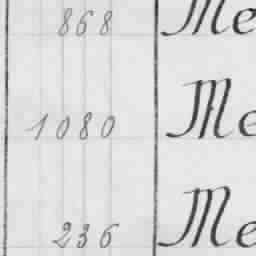 868 Me
1080 Me
236 Me